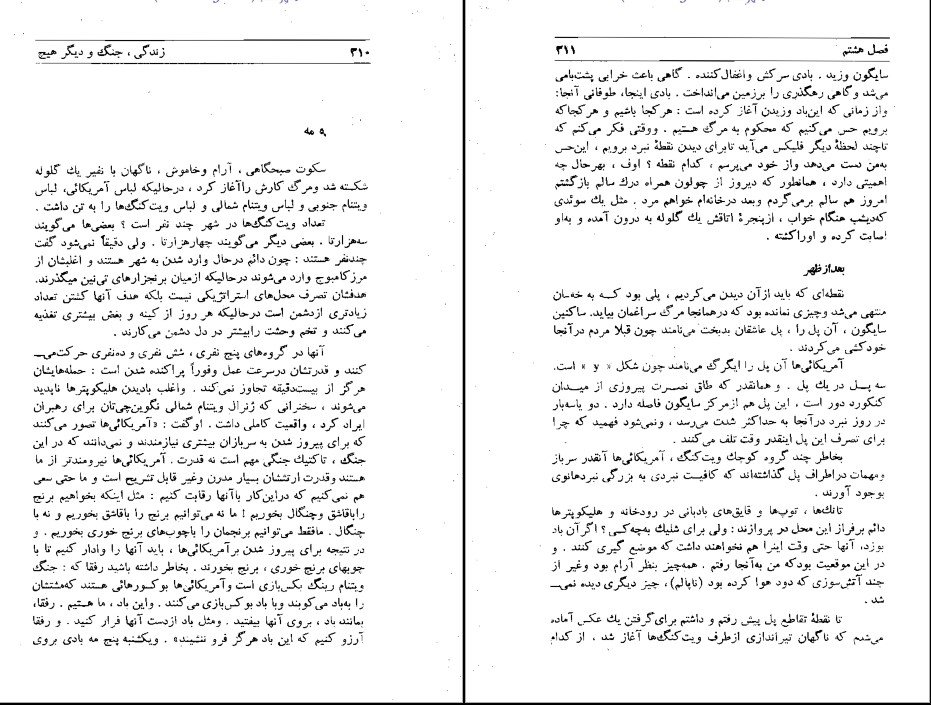 ۳۱۰ زندگی ، جنگ و دیگر هیچ
۹ مه
سکوت صبحگاهی ، آرام وخاموش ، ناگهان با نفیر یك گلوله
شکسته شد ومرگ کارش راآغاز کرد ، درحالیکه لباس آمریکائی، لباس
ویتنام جنوبی و لباس ویتنام شمالی و لباس ویت‌کنگ‌ها را به تن داشت .
تعداد ویت‌کنگ‌ها در شهر چند نفر است ؟ بعضی‌ها می‌گویند
سه‌هزارتا . بعضی دیگر می‌گویند چهارهزارتا . ولی دقیقاً نمی‌شود گفت
چندنفر هستند : چون دائم درحال وارد شدن به شهر هستند و اغلبشان از
مرزکامبوج وارد می‌شوند درحالیکه ازمیان برنجزارهای تی‌نین میگذرند.
هدفشان تصرف محل‌های استراتژیکی نیست بلکه هدف آنها کشتن تعداد
زیادتری ازدشمن است درحالیکه هر روز از کینه و بغض بیشتری تغذیه
می‌کنند و تخم وحشت رابیشتر در دل دشمن می‌کارند .
آنها در گروه‌های پنج نفری ، شش نفری و ده‌نفری حرکت‌می‌ـ
کنند و قدرتشان درسرعت عمل وفوراً پراکنده شدن است : حمله‌هایشان
هرگز از بیست‌دقیقه تجاوز نمی‌کند . واغلب بادیدن هلیکوپترها ناپدید
می‌شوند ، سخنرانی که ژنرال ویتنام شمالی نگوین‌چی‌تان برای رهبران
ایراد کرد ، واقعیت کاملی داشت . اوگفت : «آمریکائی‌ها تصور می‌کنند
که برای پیروز شدن به سربازان بیشتری نیازمندند و نمی‌دانند که در این
جنگ ، تاکتیك جنگی مهم است نه قدرت . آمریکائی‌ها نیرومندتر از ما
هستند وقدرت ارتششان بسیار مدرن وغیر قابل تشریح است و ما حتی سعی
هم نمی‌کنیم که دراین‌کار باآنها رقابت کنیم : مثل اینکه بخواهیم برنج
راباقاشق وچنگال بخوریم ! ما نه می‌توانیم برنج را باقاشق بخوریم و نه با
چنگال . مافقط می‌توانیم برنجمان را باچوب‌های برنج خوری بخوریم . و
در نتیجه برای پیروز شدن برآمریکائی‌ها ، باید آنها را وادار کنیم تا با
چوبهای برنج خوری ، برنج بخورند . بخاطر داشته باشید رفقا که : جنگ
ویتنام رینگ بکس‌بازی است وآمریکائی‌ها بوکسورهائی هستند که‌مشتشان
را به‌باد می‌کوبند وبا باد بوکس‌بازی می‌کنند . واین باد ، ما هستیم . رفقا،
بمانند باد ، بروی آنها بیفتید . ومثل باد ازدست آنها فرار کنید . و رفقا
آرزو کنیم که این باد هرگز فرو ننشیند» . ویکشنبه پنج مه بادی بروی
فصل هشتم ۳۱۱
سایگون وزید . بادی سرکش واغفال‌کننده . گاهی باعث خرابی پشت‌بامی
می‌شد وگاهی رهگذری را برزمین می‌انداخت . بادی اینجا، طوفانی آنجا:
واز زمانی که این‌باد وزیدن آغاز کرده است : هرکجا باشیم و هرکجاکه
برویم حس می‌کنیم که محکوم به مرگ هستیم . ووقتی فکر می‌کنم که
تاچند لحظهٔ دیگر فلیکس می‌آید تابرای دیدن نقطهٔ نبرد برویم ، این‌حس
به‌من دست می‌دهد واز خود می‌پرسم ، کدام نقطه ؟ اوف ، بهرحال چه
اهمیتی دارد ، همانطور که دیروز از چولون همراه درك سالم بازگشتم
امروز هم سالم برمی‌گردم وبعد درخانه‌ام خواهم مرد . مثل یك سوئدی
که‌دیشب هنگام خواب ، ازپنجرهٔ اتاقش یك گلوله به درون آمده و به‌او
اصابت کرده و اوراکشته .
بعدازظهر
نقطه‌ای که باید ازآن دیدن می‌کردیم ، پلی بود کـه به
منتهی می‌شد وچیزی نمانده بود که درهمانجا مرگ سراغمان بیاید. ساکنین
سایگون ، آن پل را ، پل عاشقان بدبخت می‌نامند چون قبلا مردم درآنجا
خودکشی می‌کردند .
آمریکائی‌ها آن پل را ایگرگ می‌نامند چون شکل « y » است.
سه پـل در یك پل . و همانقدر که طاق نصـرت پیروزی از میـدان
کنکورد دور است ، این پل هم ازمرکز سایگون فاصله دارد . دو یاسه‌بار
در روز نبرد درآنجا به حداکثر شدت می‌رسد ، ونمی‌شود فهمید که چرا
برای تصرف این پل اینقدر وقت تلف می‌کنند .
بخاطر چند گروه کوچك ویت‌کنگ ، آمریکائی‌ها آنقدر سرباز
ومهمات دراطراف پل گذاشته‌اند که کافیست نبردی به بزرگی نبردهانوی
بوجود آورند .
تانك‌ها ، توپ‌ها و قایق‌های بادبانی در رودخانه و هلیکوپترها
دائم برفراز این محل در پروازند : ولی برای شلیك به‌چه‌کسی ؟ اگرآن باد
بوزد، آنها حتی وقت اینرا هم نخواهند داشت که موضع گیری کنند . و
در این موقعیت بودکه من به‌آنجا رفتم . همه‌چیز بنظر آرام بود وغیر از
چند آتش‌سوزی که دود هوا کرده بود (ناپالم) ، چیز دیگری دیده نمی‌ـ
شد .
تا نقطهٔ تقاطع پل پیش رفتم و داشتم برای‌گرفتن یك عکس آماده
می‌شدم که ناگهان تیراندازی ازطرف ویت‌کنگ‌ها آغاز شد . از کدام